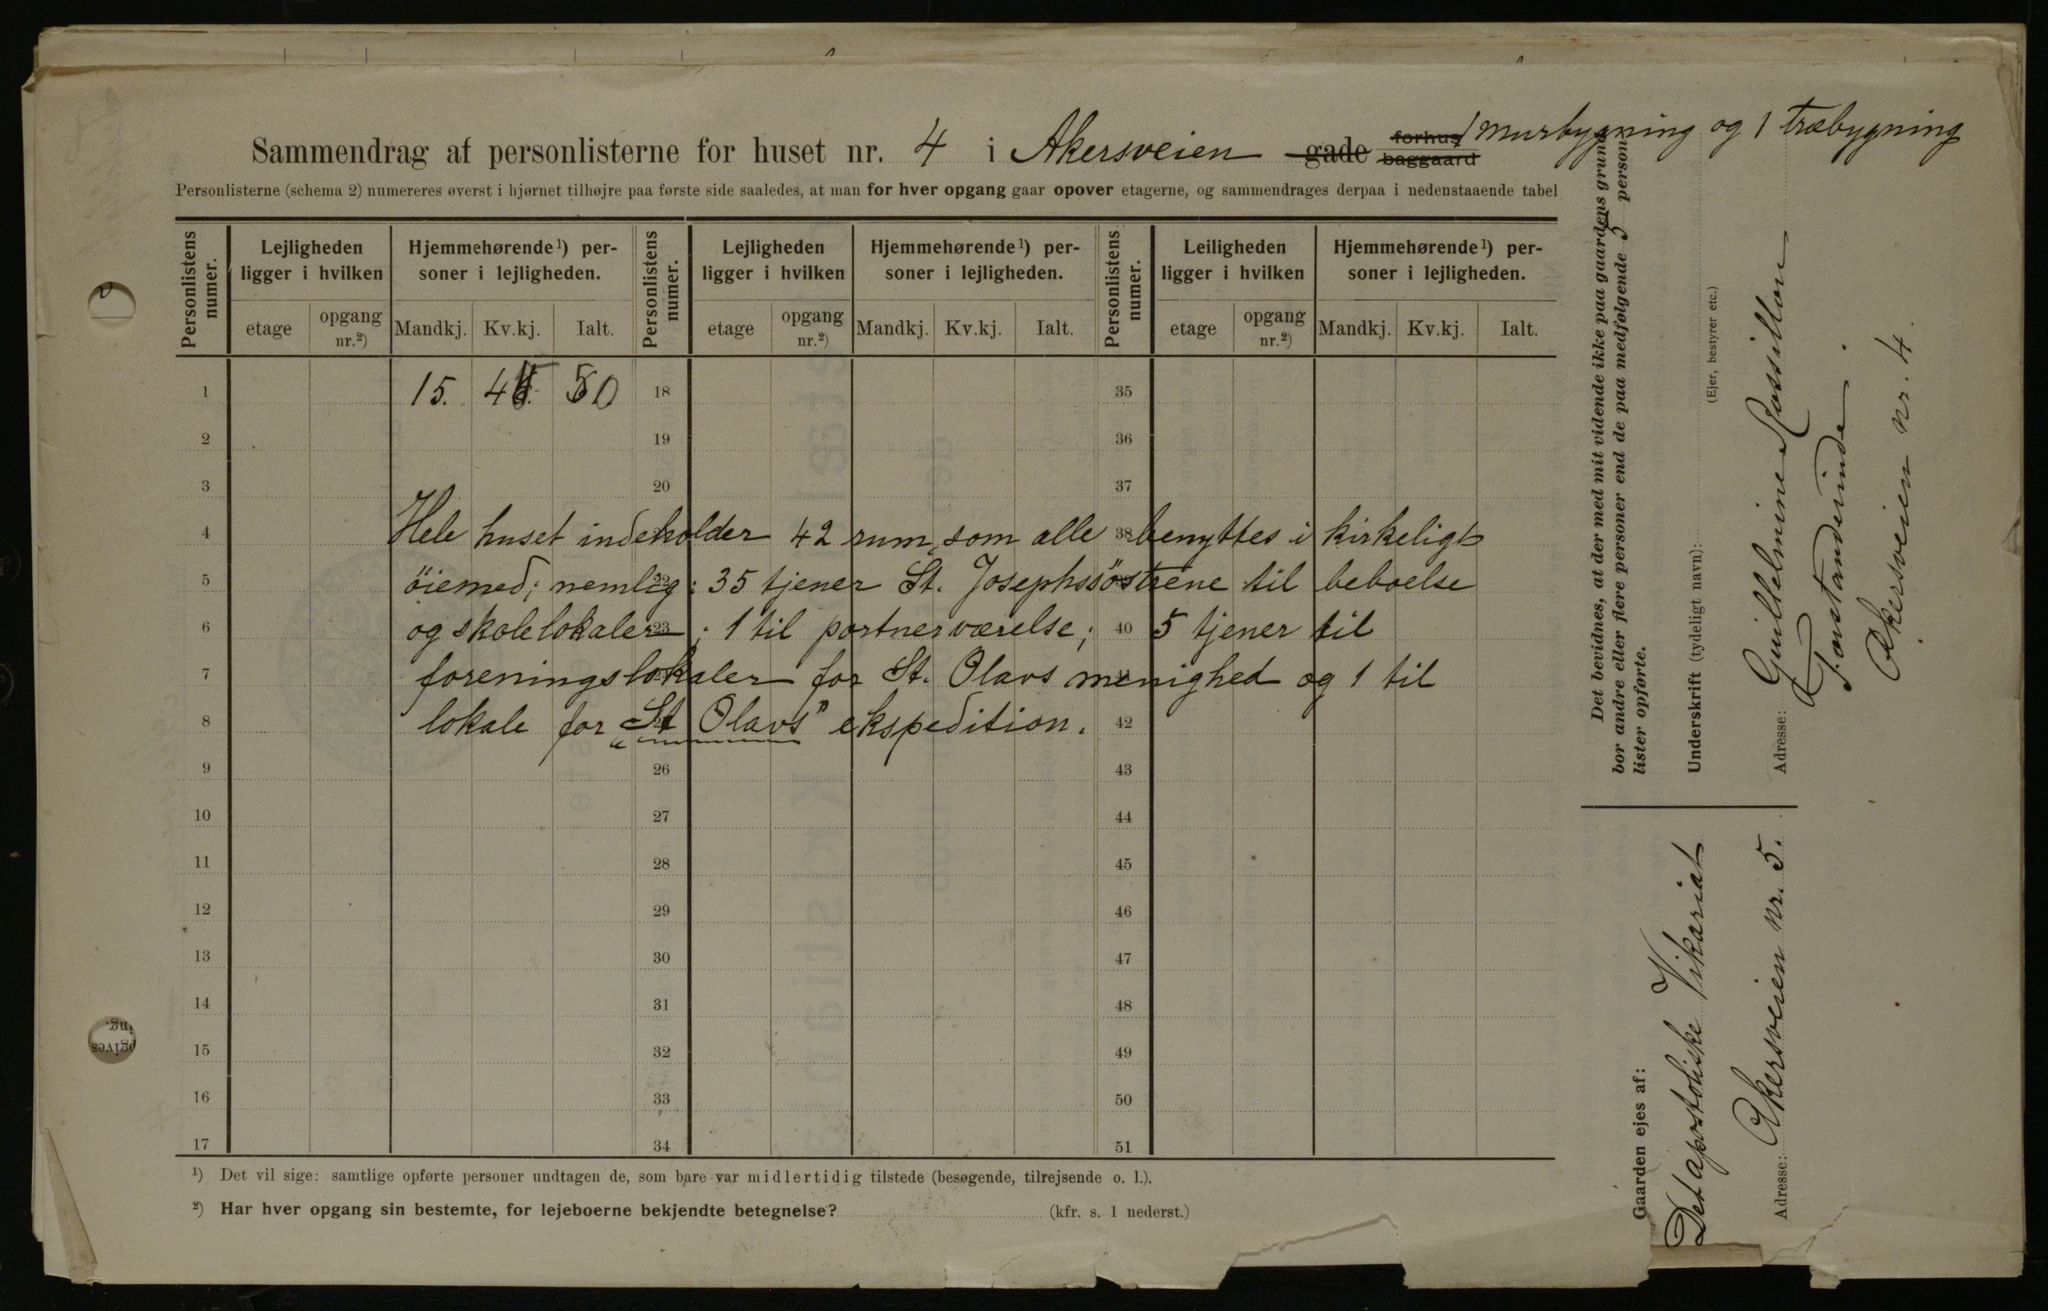 Sammendrag af personlisterne for huset nr. 4 i Akersveien gade forhus baggaard 1 murbygning og 1 træbygning
Personlisterne (schema 2) numereres øverst i hjørnet tilhøjre paa første side saaledes, at man for hver opgang gaar opover etagerne, og sammendrages derpaa i nedenstaaende tabel
Personlistens numer. Lejligheden ligger i hvilken Hjemmehørende¹) personer i lejligheden. Personlistens numer. Lejligheden ligger i hvilken Hjemmehørende¹) personer i lejligheden. Personlistens numer. Leiligheden ligger i hvilken Hjemmehørende¹) personer i lejligheden.
etage opgang nr.²) Mandkj. Kv.kj. Ialt. etage opgang nr.²) Mandkj. Kv.kj. Ialt. etage opgang nr.²) Mandkj. Kv.kj. Ialt.
1 15. 45 50 18 35
2 19 36
3 20 37
4 Hele huset indeholder 42 rum, som alle 38 benyttes i kirkeligt
5 øiemed; nemlig: 35 tjener St. Josephssøstrene til beboelse
6 og skolelokaler; 23 1 til portnerværelse; 40 5 tjener til
7 foreningslokaler for St. Olavs menighed og 1 til
8 lokale for „St Olavs" ekspedition. 42
9 26 43
10 27 44
11 28 45
12 29 46
13 30 47
14 31 48
15 32 49
16 33 50
17 34 51
¹) Det vil sige: samtlige opførte personer undtagen de, som bare var midlertidig tilstede (besøgende, tilrejsende o. l.).
²) Har hver opgang sin bestemte, for lejeboerne bekjendte betegnelse? (kfr. s. 1 nederst.)
Det bevidnes, at der med mit vidende ikke paa gaardens grund
bor andre eller flere personer end de paa medfølgende 5 person-
lister opførte.
Underskrift (tydeligt navn):
(Ejer, bestyrer etc.)
Guillelmine Rossillon
Forstanderinde.
Adresse: Akersveien nr. 4.
Gaarden ejes af:
Det apostoliske Vikariat
Adresse: Akersveien nr. 5.
ing.
pgives